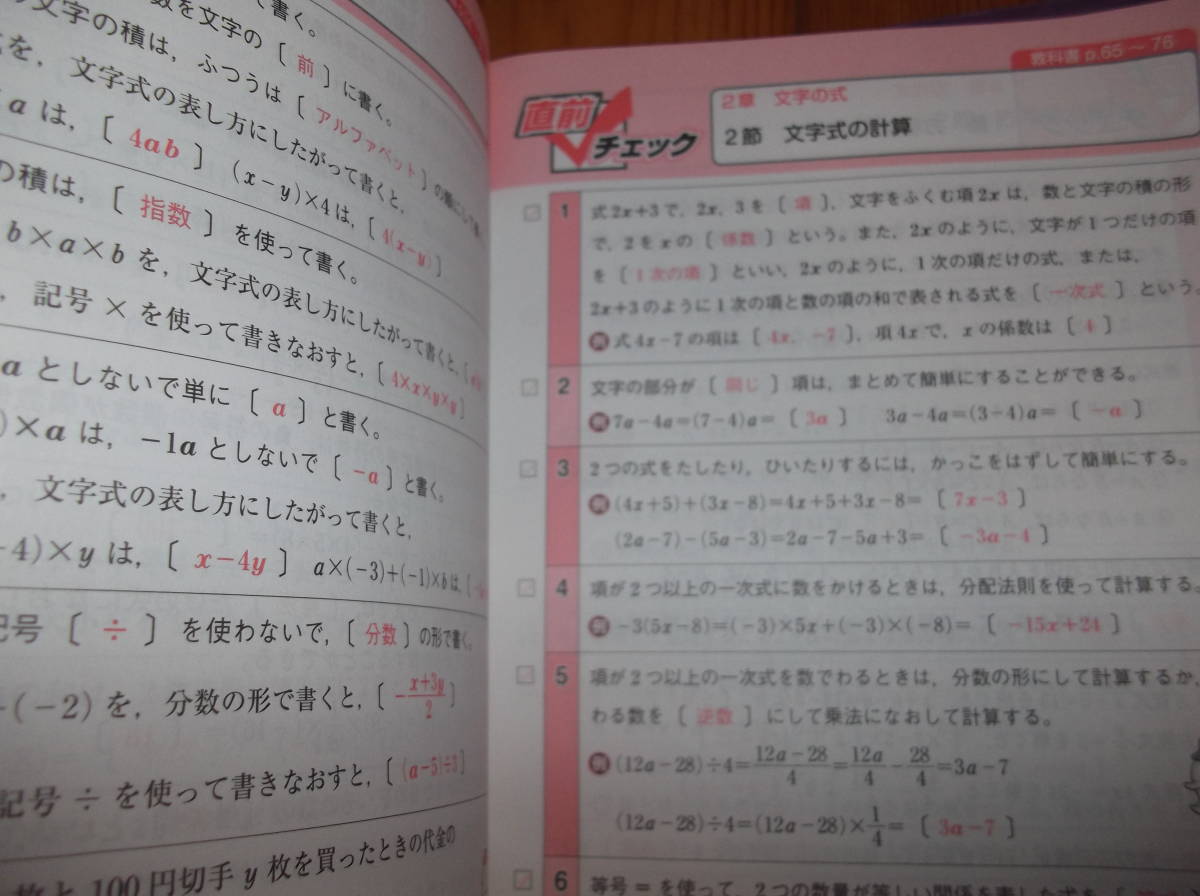 数を文字の〔 前 〕に書く。
文字の積は，ふつうは〔 アルファベット 〕の順にして
を，文字式の表し方にしたがって書くと，
a は，〔 4ab 〕 (x－y)×4は，〔 4(x－y) 〕
の積は，〔 指数 〕を使って書く。
b×a×b を，文字式の表し方にしたがって書くと，〔
，記号 × を使って書きなおすと，〔 4×x×y×y 〕
a としないで単に〔 a 〕と書く。
)×a は，－1a としないで〔 －a 〕と書く。
，文字式の表し方にしたがって書くと，
－4)×y は，〔 x－4y 〕 a×(－3)+(－1)×b は，〔
記号〔 ÷ 〕を使わないで，〔 分数 〕の形で書く。
(－2) を，分数の形で書くと，〔 －x+3y/2 〕
記号 ÷ を使って書きなおすと，〔 (a－5)÷3 〕
100円切手 y 枚を買ったときの代金の
教科書 p.65 ～ 76
直前チェック
2章 文字の式
2節 文字式の計算
1 式2x+3で，2x，3を〔 項 〕，文字をふくむ項2xは，数と文字の積の形
で，2をxの〔 係数 〕という。また，2xのように，文字が1つだけの項
を〔 1次の項 〕といい，2xのように，1次の項だけの式，または，
2x+3のように1次の項と数の項の和で表される式を〔 一次式 〕という。
例 式4x－7の項は〔 4x，－7 〕，項4xで，xの係数は〔 4 〕
2 文字の部分が〔 同じ 〕項は，まとめて簡単にすることができる。
例 7a－4a=(7－4)a=〔 3a 〕 3a－4a=(3－4)a=〔 －a 〕
3 2つの式をたしたり，ひいたりするには，かっこをはずして簡単にする。
例 (4x+5)+(3x－8)=4x+5+3x－8=〔 7x－3 〕
(2a－7)－(5a－3)=2a－7－5a+3=〔 －3a－4 〕
4 項が2つ以上の一次式に数をかけるときは，分配法則を使って計算する。
例 －3(5x－8)=(－3)×5x+(－3)×(－8)=〔 －15x+24 〕
5 項が2つ以上の一次式を数でわるときは，分数の形にして計算するか，
わる数を〔 逆数 〕にして乗法になおして計算する。
例 (12a－28)÷4=12a－28/4=12a/4－28/4=3a－7
(12a－28)÷4=(12a－28)×1/4=〔 3a－7 〕
6 等号 = を使って，2つの数量が等しい関係を表した式を